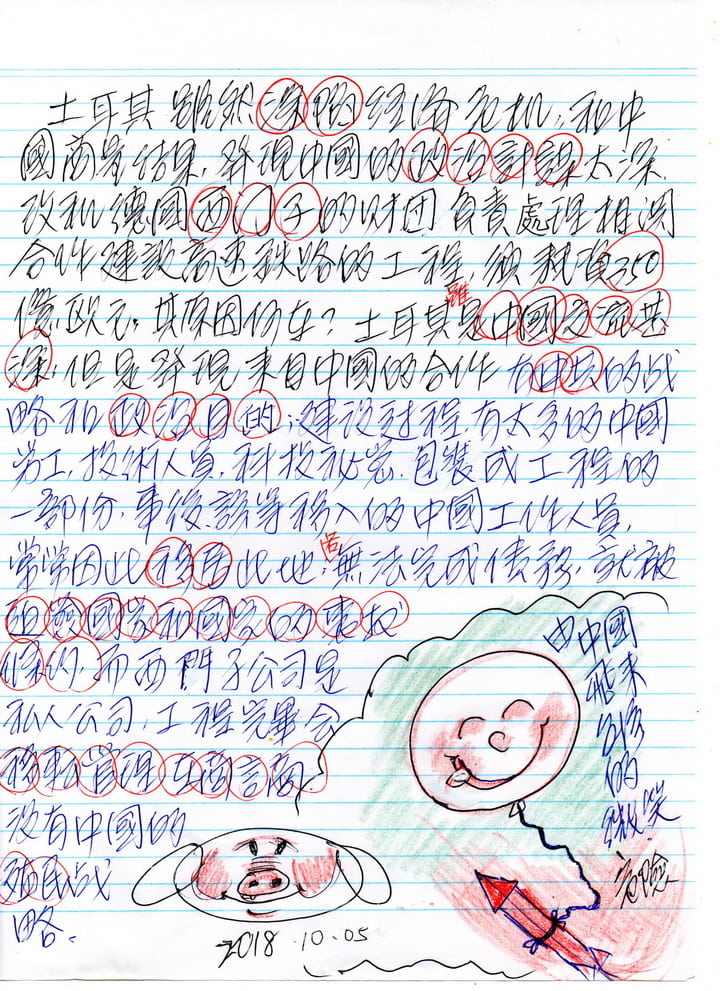 土耳其雖然深陷經濟危机,和中
國商量結果,發現中國的政治計謀太深,
改和德國西门子的财团負責處理相関
合作建設高速秩路的工程,須耗資350
億歐元,其原因何在?土耳其雖是中國交流甚
深,但是發現來自中國的合作有中共的战
略和政治目的;建设过程,有太多的中國
劳工,技術人員,科技秘党,包裝成工程的
一部份,事後該等移入的中國工作人員,
常常因此移居此地,若無法完成债務,就被
國家和國家的事权
條約,而西門子公司是
私人公司,工程完畢会
移転管理在商言商.
没有中國的
殖民战
略.
由中國
飛來
的
微笑
危險
2018.10.05